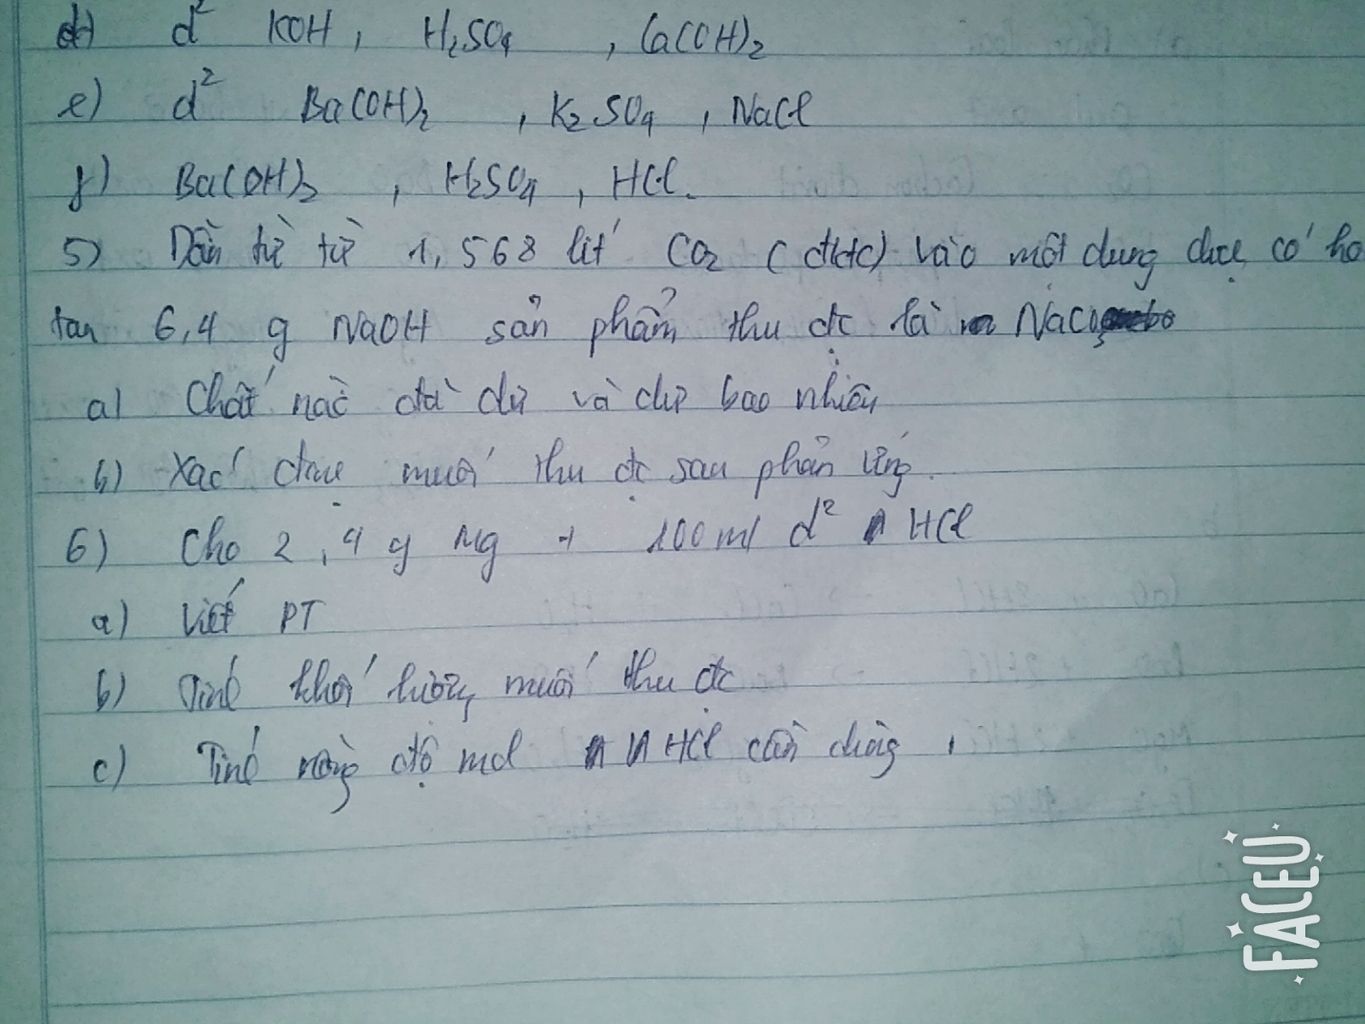 d) d² KOH, H₂SO₄, Ca(OH)₂
e) d² Ba(OH)₂, K₂SO₄, NaCl
f) Ba(OH)₂, H₂SO₄, HCl.
5) Dẫn từ từ 1,568 lít CO₂ (đktc) vào một dung dịch có hò
tan 6,4 g NaOH sản phẩm thu đc là NaCO₃
a) Chất nào đã dư và dư bao nhiêu
b) Xác định muối thu đc sau phản ứng.
6) Cho 2,4 g Mg + 100 ml d² HCl
a) Viết PT
b) Tính khối lượng muối thu đc
c) Tính nồng độ mol HCl cần dùng.
FACEU